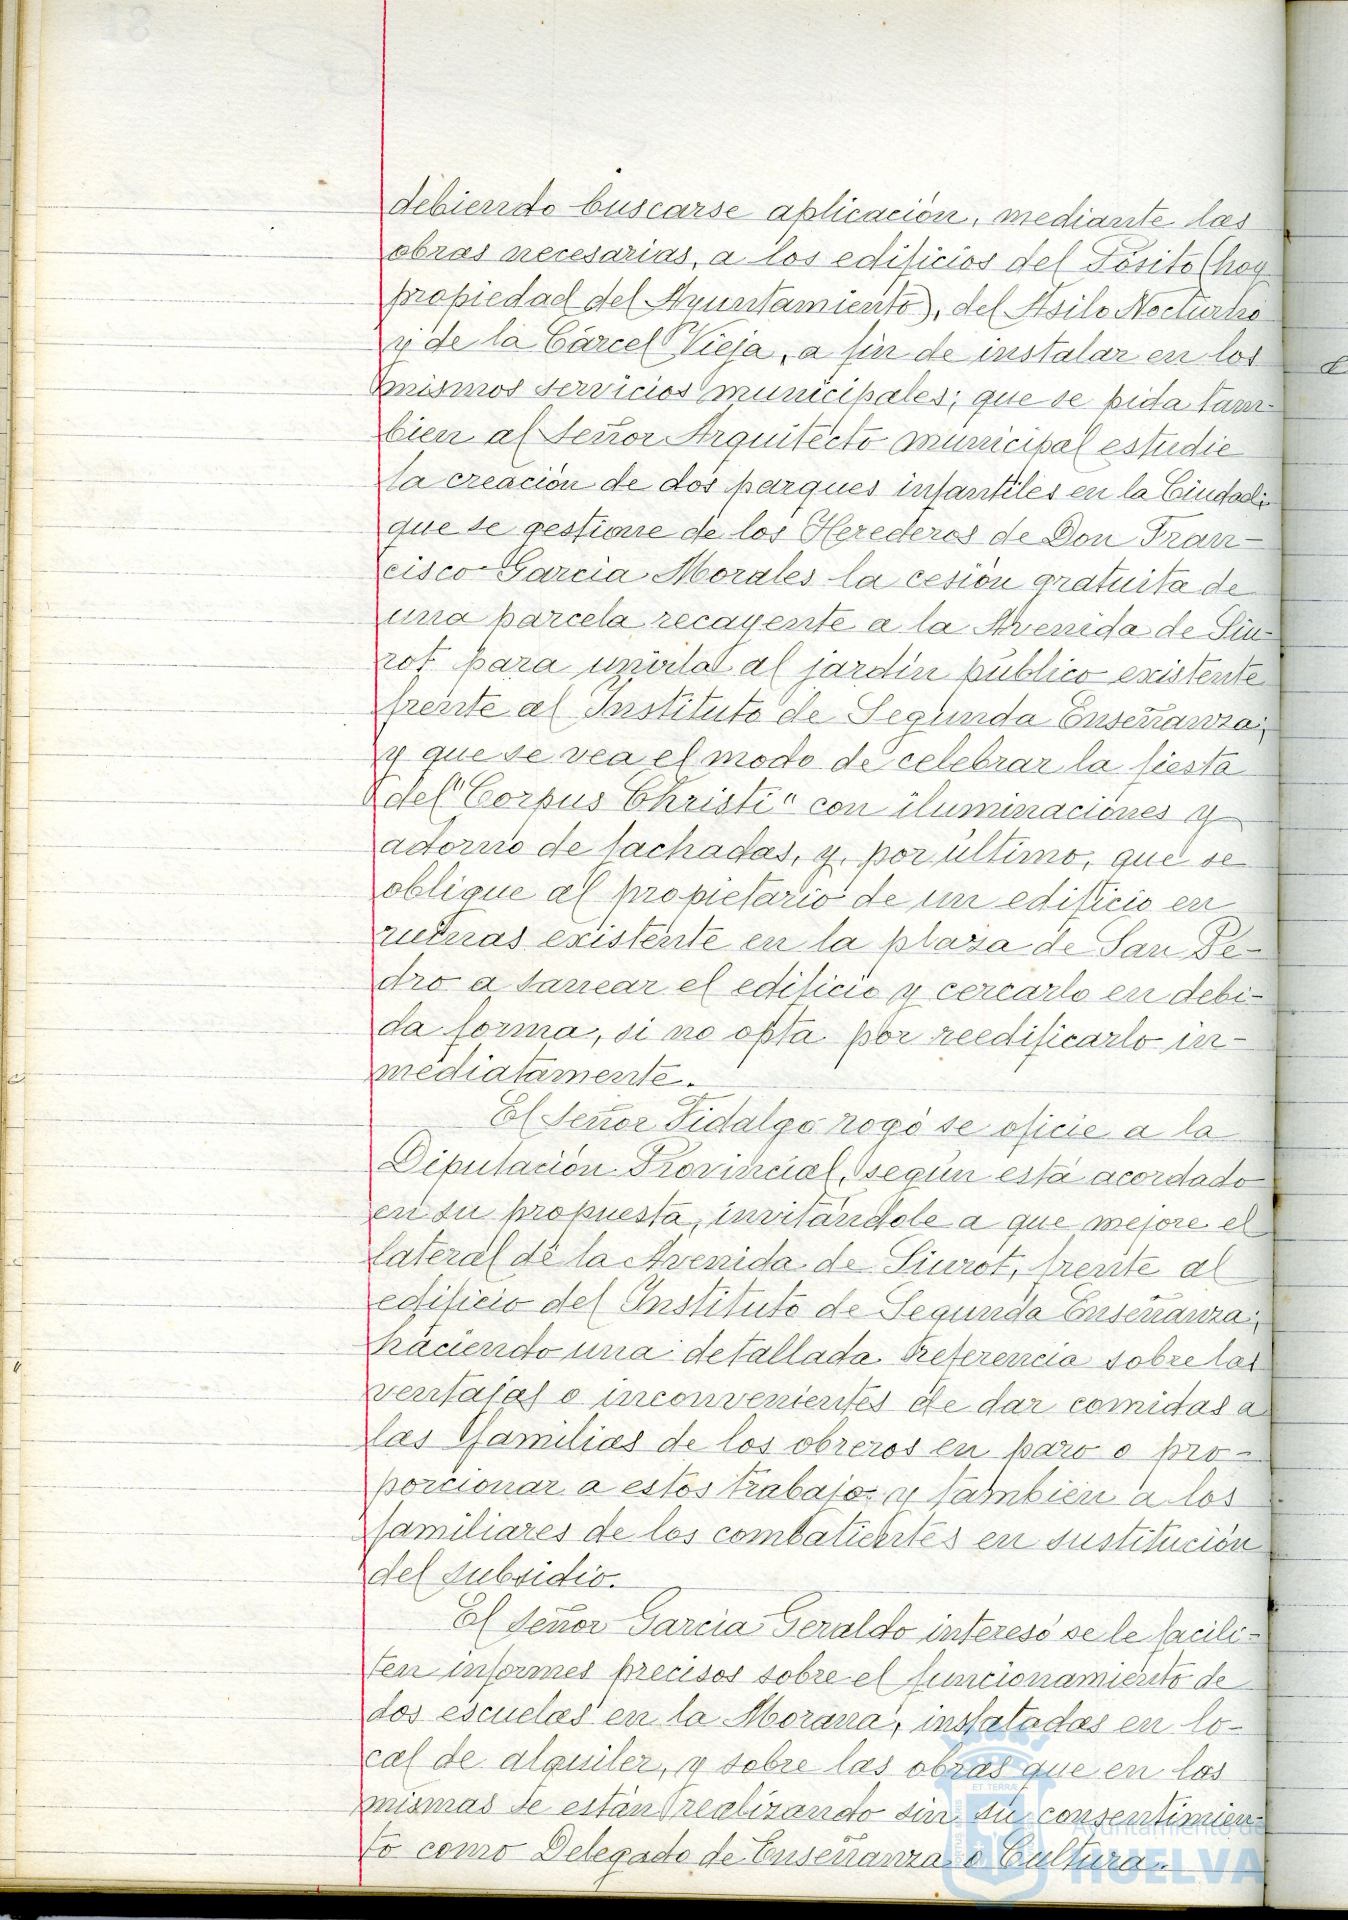 debiendo buscarse aplicación, mediante las
obras necesarias, a los edificios del Pósito (hoy
propiedad del Ayuntamiento), del Asilo Nocturno
y de la Cárcel Vieja, a fin de instalar en los
mismos servicios municipales; que se pida tam-
bien al Señor Arquitecto municipal estudie
la creación de dos parques infantiles en la Ciudad;
que se gestione de los Herederos de Don Fran-
cisco García Morales la cesión gratuita de
una parcela recayente a la Avenida de Siu-
rot para unirla al jardín público existente
frente al Instituto de Segunda Enseñanza;
y que se vea el modo de celebrar la fiesta
del "Corpus Christi" con iluminaciones y
adorno de fachadas, y, por último, que se
obligue al propietario de un edificio en
ruinas existente en la plaza de San Pe-
dro a sanear el edificio y cercarlo en debi-
da forma, si no opta por reedificarlo in-
mediatamente.
El Señor Fidalgo rogó se oficie a la
Diputación Provincial, según está acordado
en su propuesta, invitándole a que mejore el
lateral de la Avenida de Siurot, frente al
edificio del Instituto de Segunda Enseñanza;
haciendo una detallada referencia sobre las
ventajas o inconvenientes de dar comidas a
las familias de los obreros en paro o pro-
porcionar a estos trabajo y tambien a los
familiares de los combatientes en sustitución
del subsidio.
El Señor García Geraldo interesó se le facili-
ten informes precisos sobre el funcionamiento de
dos escuelas en la Morana, instaladas en lo-
cal de alquiler, y sobre las obras que en las
mismas se están realizando sin su consentimien-
to como Delegado de Enseñanza o Cultura.
ET TERRÆ
Ayuntamiento de
HUELVA